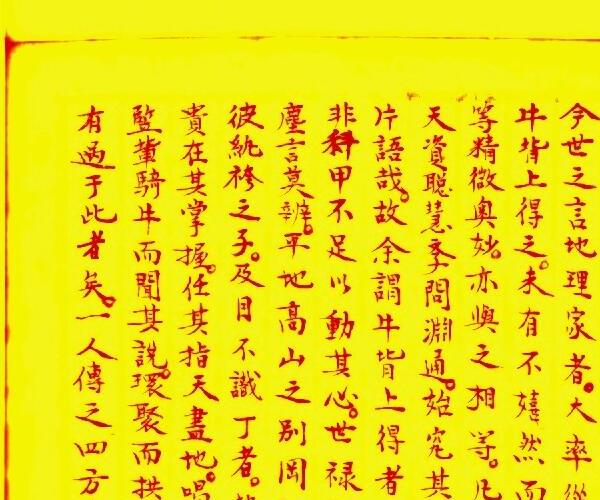 今世之言地理家者。大率從
牛背上得之。未有不嫤然而
等精微奥妙。亦與之相等。凡
天資聰慧季問淵通。始究其
片語哉。故余謂牛背上得者
非科甲不足以動其心。世禄
塵言莫辨。平地高山之別岡
彼紈袴之子。及目不識丁者。
貴在其掌握。任其指天畫地。唱
監蓄騎牛而聞其說。環聚而拱
有過于此者矣。一人傳之四方